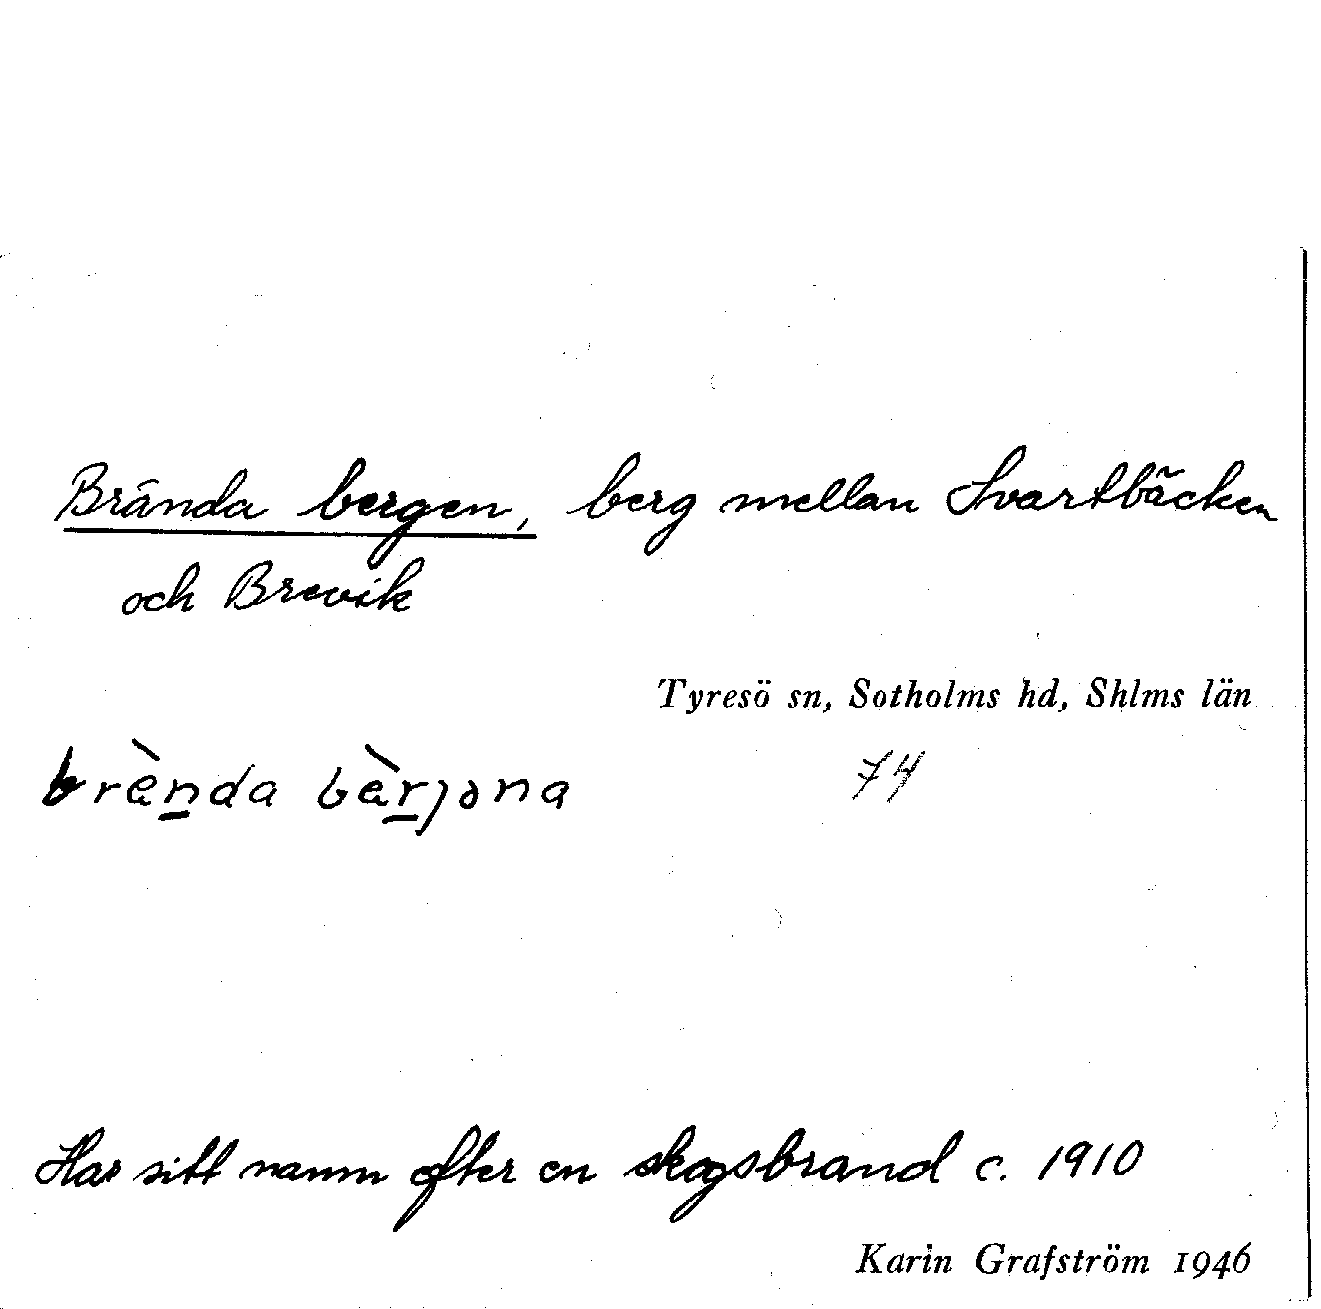 Brända bergen, berg mellan Svartbäcken
och Brevik
Tyresö sn, Sotholms hd, Shlms län
brèn̲da bèr̲jəna 74
Har sitt namn efter en skogsbrand c. 1910
Karin Grafström 1946